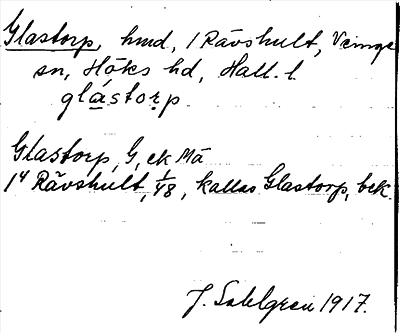 Glastorp, hmd, i Rävshult, Veinge
sn, Höks hd, Hall. l.
glástorp.
Glastorp, G, ek Mä
1⁴ Rävshult, 1/48, kallas Glastorp, bek.
J. Sahlgren 1917.